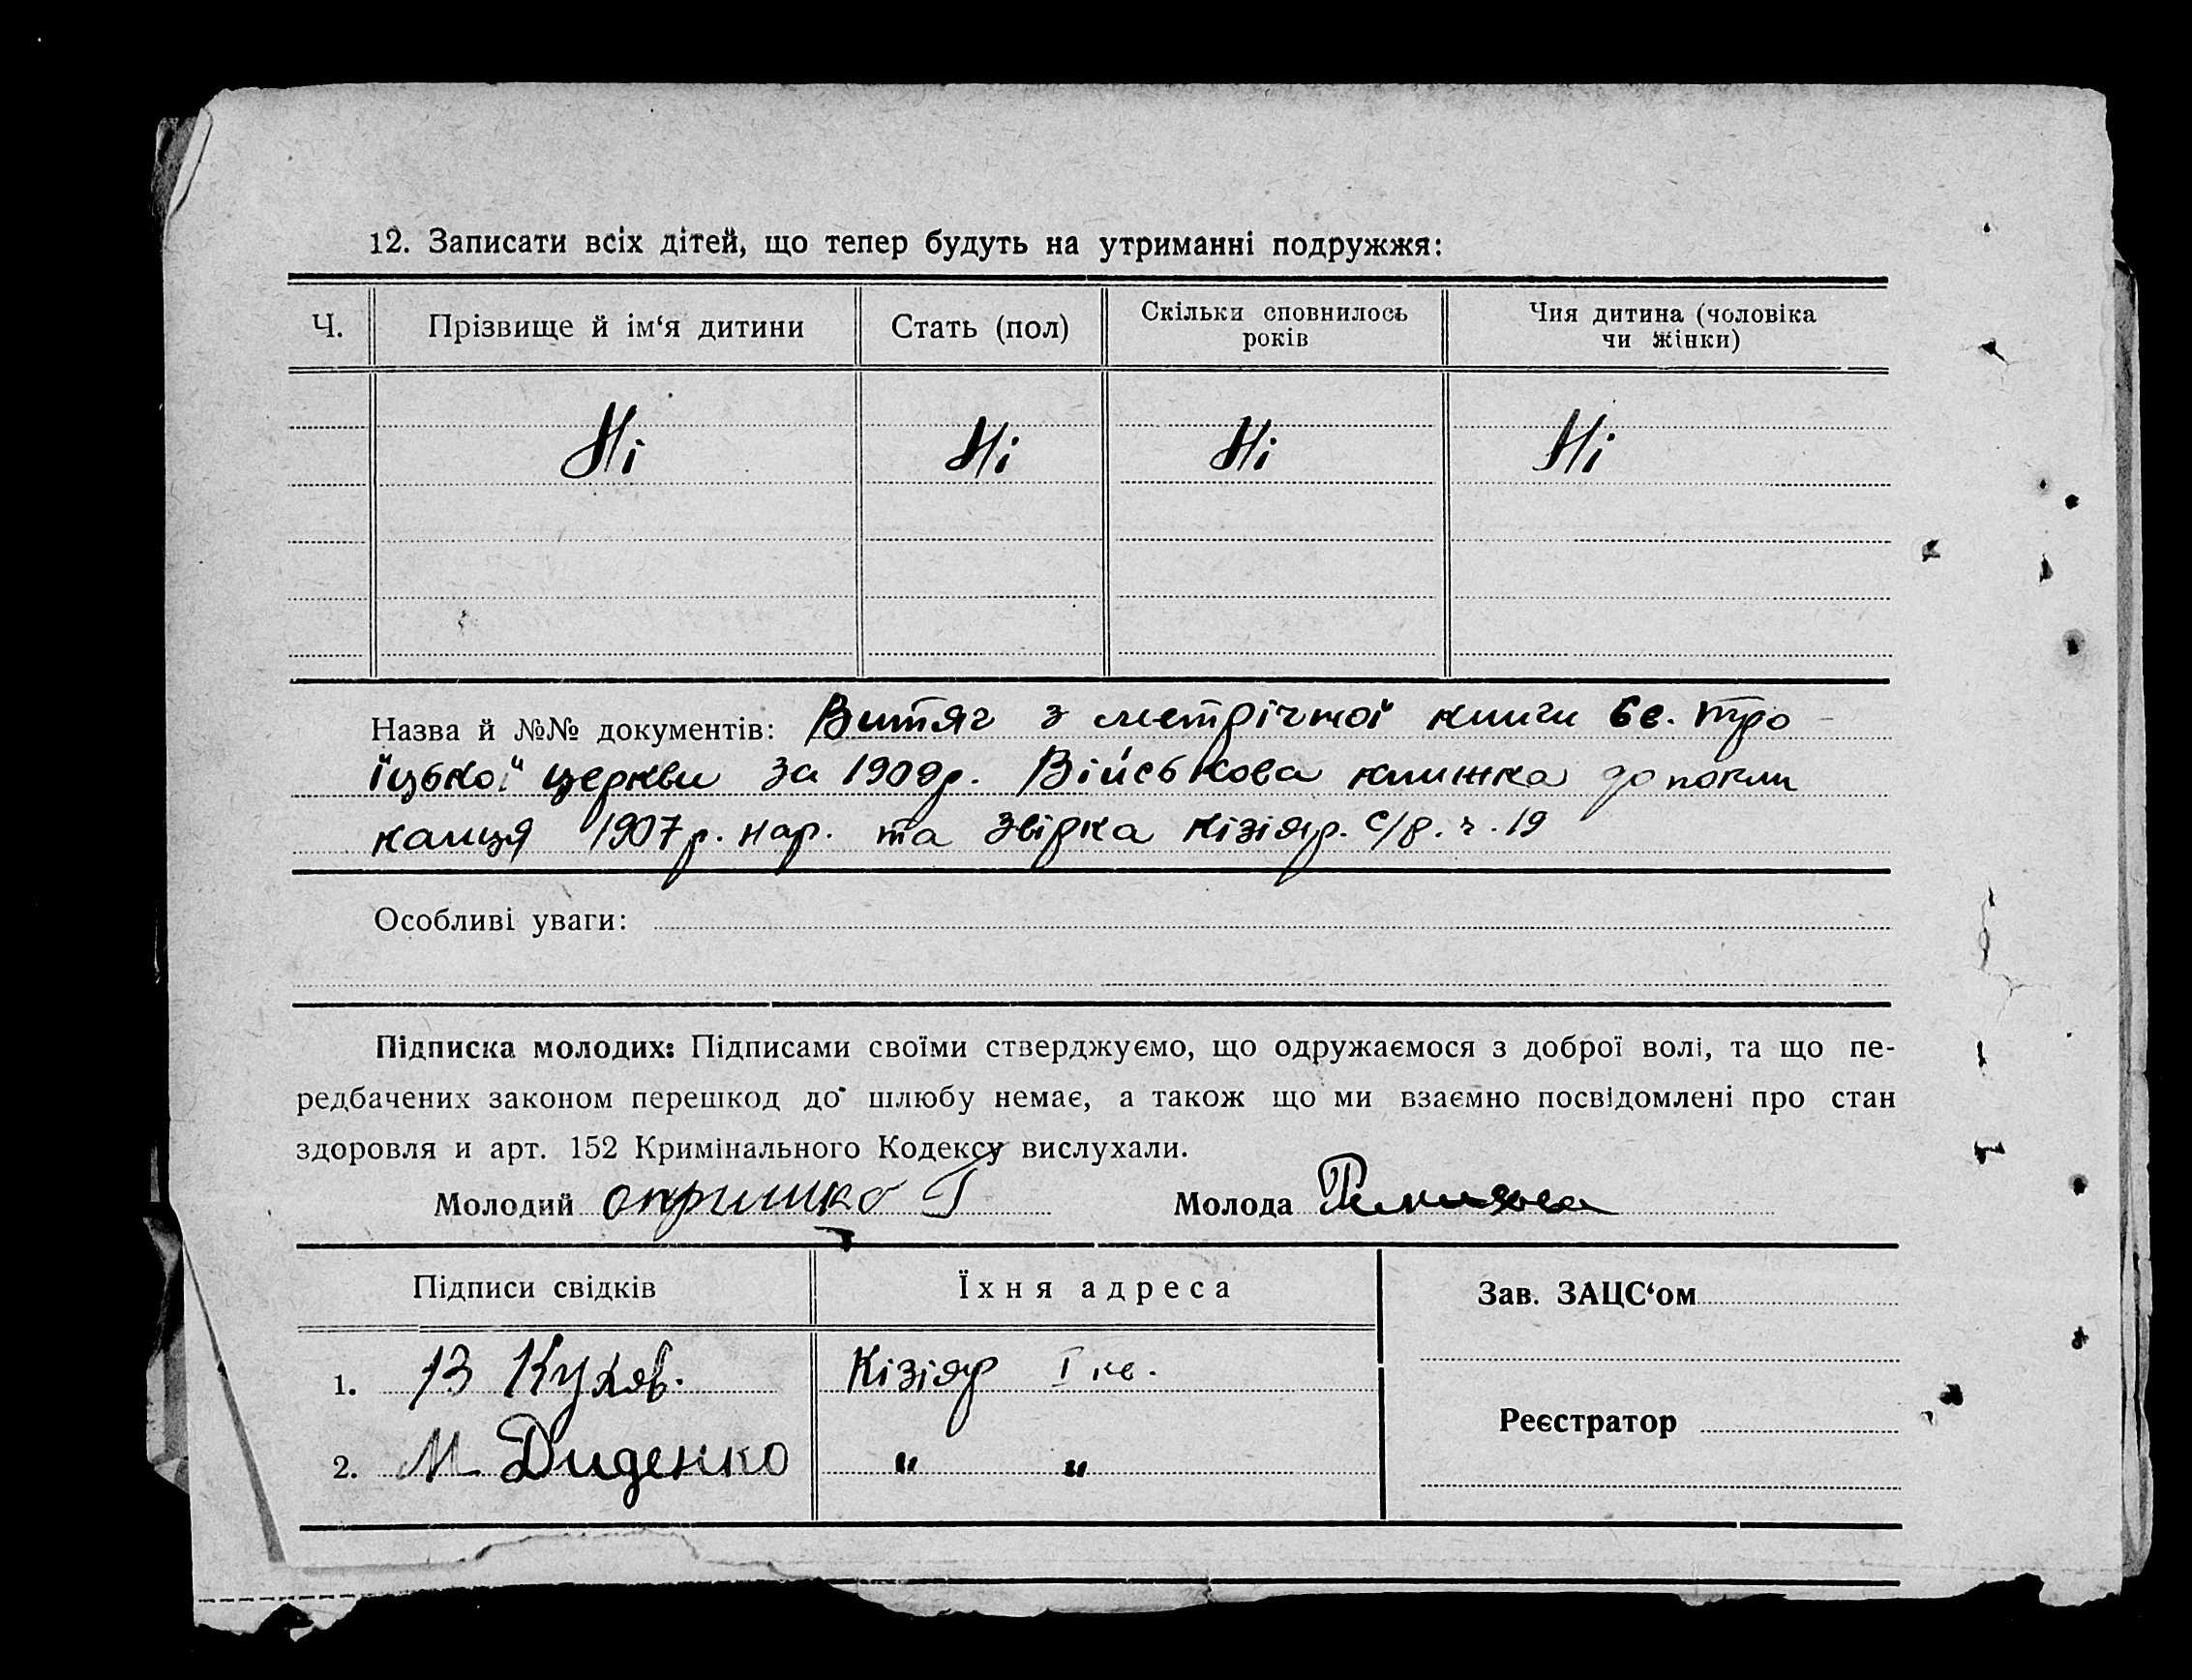 12. Записати всіх дітей, що тепер будуть на утриманні подружжя:
Ч. Прізвище й ім‘я дитини Стать (пол) Скільки сповнилось років Чия дитина (чоловіка чи жінки)
Ні Ні Ні Ні
Назва й №№ документів: Витяг з метрічної книги Св. Тро-
їцької церкви за 1909р. Військова книжка допоклик
канця 1907р. нар. та Звідка Кізіяр. С/р. ч. 19
Особливі уваги:
Підписка молодих: Підписами своїми стверджуємо, що одружаємося з доброї волі, та що пе-
редбачених законом перешкод до шлюбу немає, а також що ми взаємно посвідомлені про стан
здоровля и арт. 152 Кримінального Кодексу вислухали.
Молодий опришко Г Молода
Підписи свідків Їхня адреса Зав. ЗАЦС‘ом
1. Кізіяр І кв.
Реєстратор
2. М Диденко " "